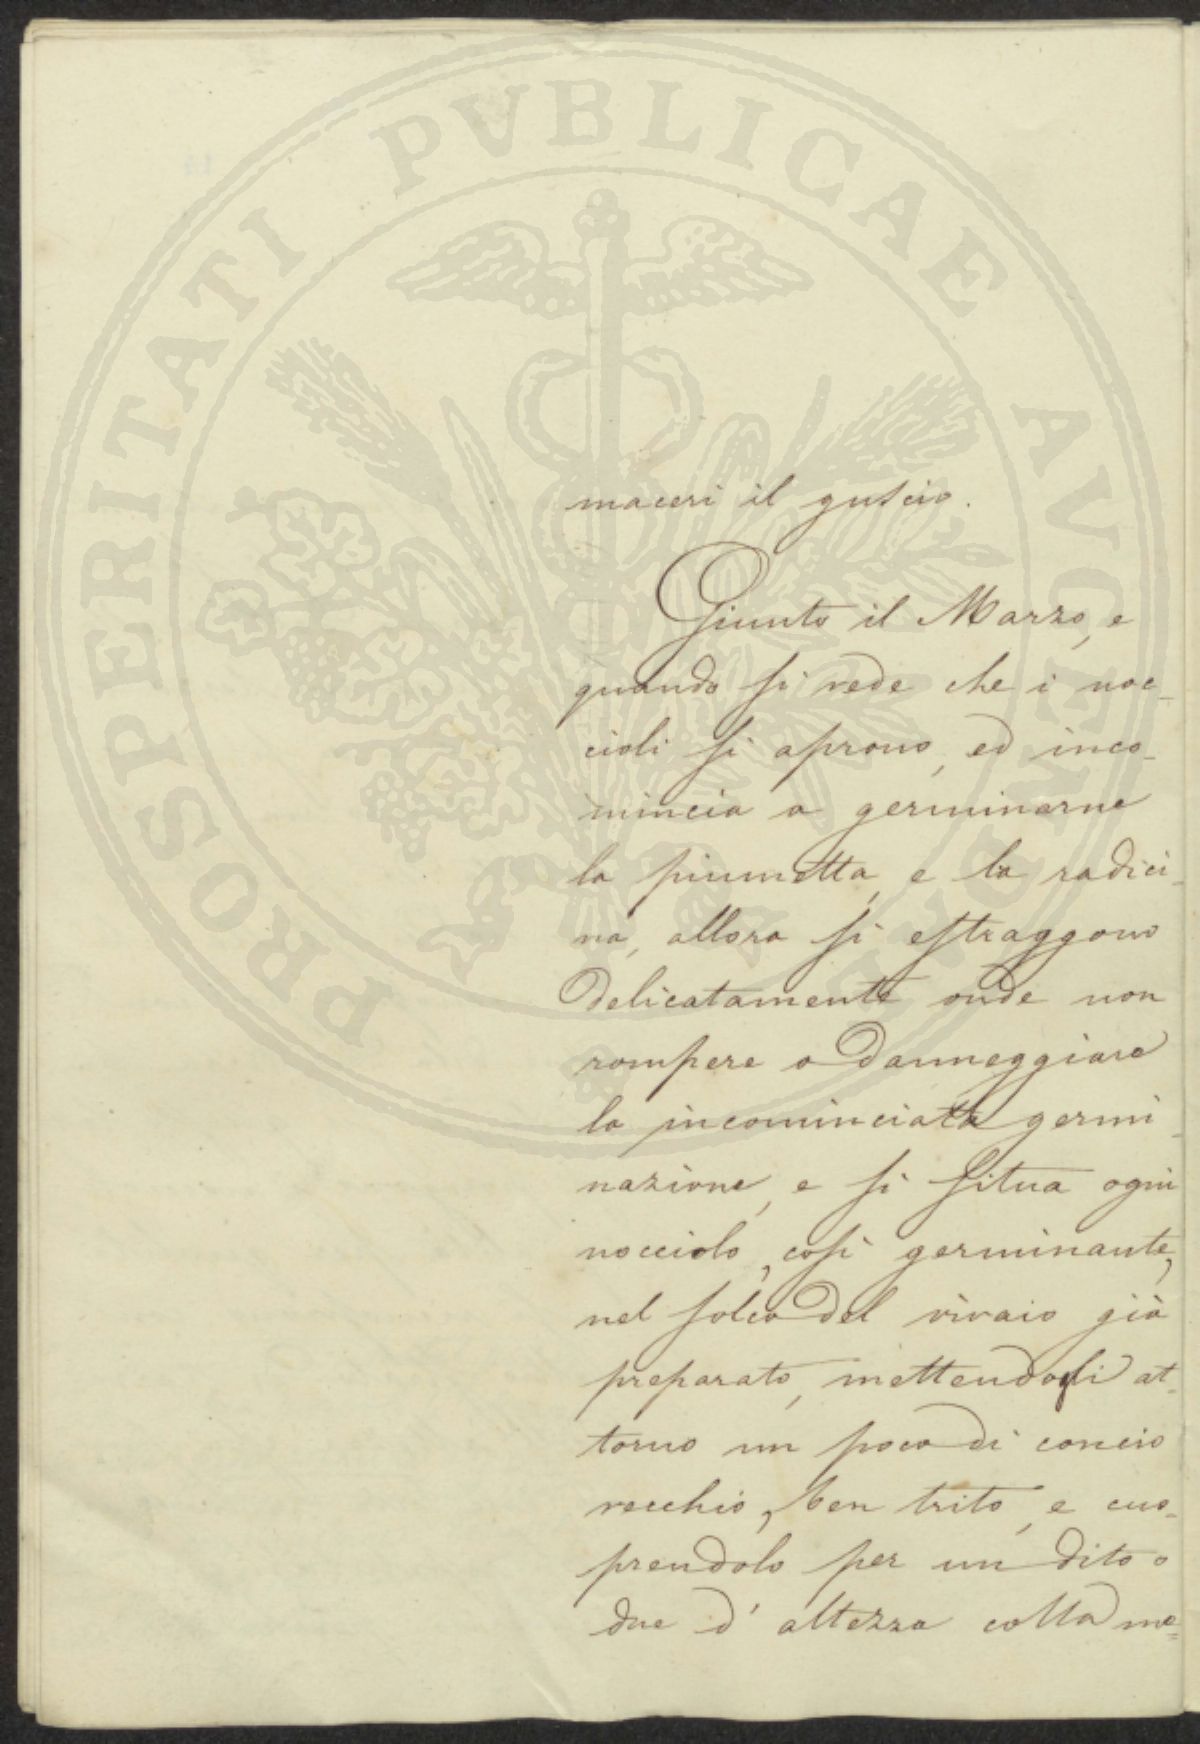 PROSPERITATI PVBLICAE AVGENDAE
maceri il guscio.
Giunto il Marzo, e
quando si vede che i noc-
cioli si aprono, ed inco-
mincia a germinarne
la piumetta, e la radici-
na, allora si estraggono
delicatamente onde non
rompere o danneggiare
la incominciata germi-
nazione, e si situa ogni
nocciolo, così germinante,
nel solco del vivaio già
preparato, mettendogli at-
torno un poco di concio
vecchio, ben trito, e cuo-
prendolo per un dito o
due d'altezza colla me-